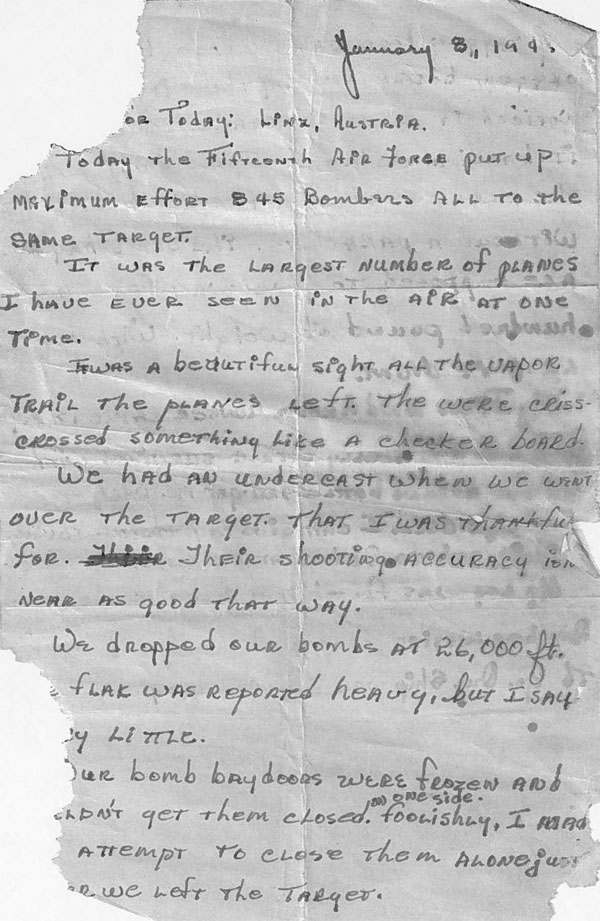 January 8, 194
or Today: Linz, Austria.
Today the Fifteenth Air Force put up
maximum effort 845 Bombers all to the
same target.
It was the largest number of planes
I have ever seen in the air at one
time.
It was a beautiful sight all the vapor
trail the planes left. The were criss-
crossed something like a checker board.
We had an undercast when we went
over the target. That I was thankful
for. Their shooting accuracy isn
near as good that way.
We dropped our bombs at 26,000 ft.
flak was reported heavy, but I say
y little.
our bomb baydoors were frozen and
ldn't get them closed. on one side. foolishly, I mad
attempt to close them alone just
r we left the target.